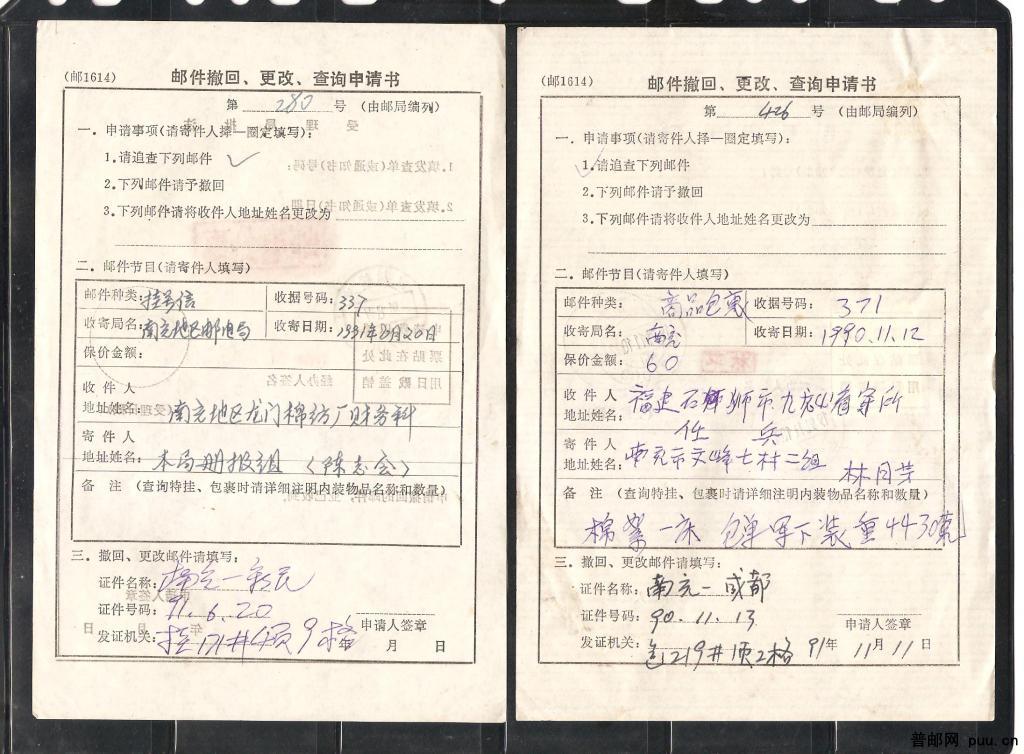 (邮1614)
邮件撤回、更改、查询申请书
第 280 号 (由邮局编列)
一．申请事项(请寄件人择一圈定填写)：
1.请追查下列邮件 ✓
2.下列邮件请予撤回
3.下列邮件请将收件人地址姓名更改为
二．邮件节目(请寄件人填写)
邮件种类：挂号信 收据号码：337
收寄局名：南充地区邮电局 收寄日期：
保价金额：
收件人
地址姓名：南充地区龙门棉纺厂财务科
寄件人
地址姓名：本局册报组（陈志会）
备 注 (查询特挂、包裹时请详细注明内装物品名称和数量)
三．撤回、更改邮件请填写：
证件名称：南充一
证件号码：91.6.20
发证机关：挂171#4页9格
申请人签章
月 日
(邮1614)
邮件撤回、更改、查询申请书
第 426 号 (由邮局编列)
一．申请事项(请寄件人择一圈定填写)：
1.请追查下列邮件
2.下列邮件请予撤回
3.下列邮件请将收件人地址姓名更改为
二．邮件节目(请寄件人填写)
邮件种类： 商品包裹 收据号码： 371
收寄局名： 南充 收寄日期：1990.11.12
保价金额： 60
收件人
地址姓名：福建石狮市九龙山看守所
任兵
寄件人
地址姓名：南充市文峰七村二组 林月芽
备 注 (查询特挂、包裹时请详细注明内装物品名称和数量)
棉絮一床 包单 军下装 重4430克
三．撤回、更改邮件请填写：
证件名称：南充一成都
证件号码：90.11.13
发证机关：包219#页2格
申请人签章
91年11月11日
普邮网 puu.cn